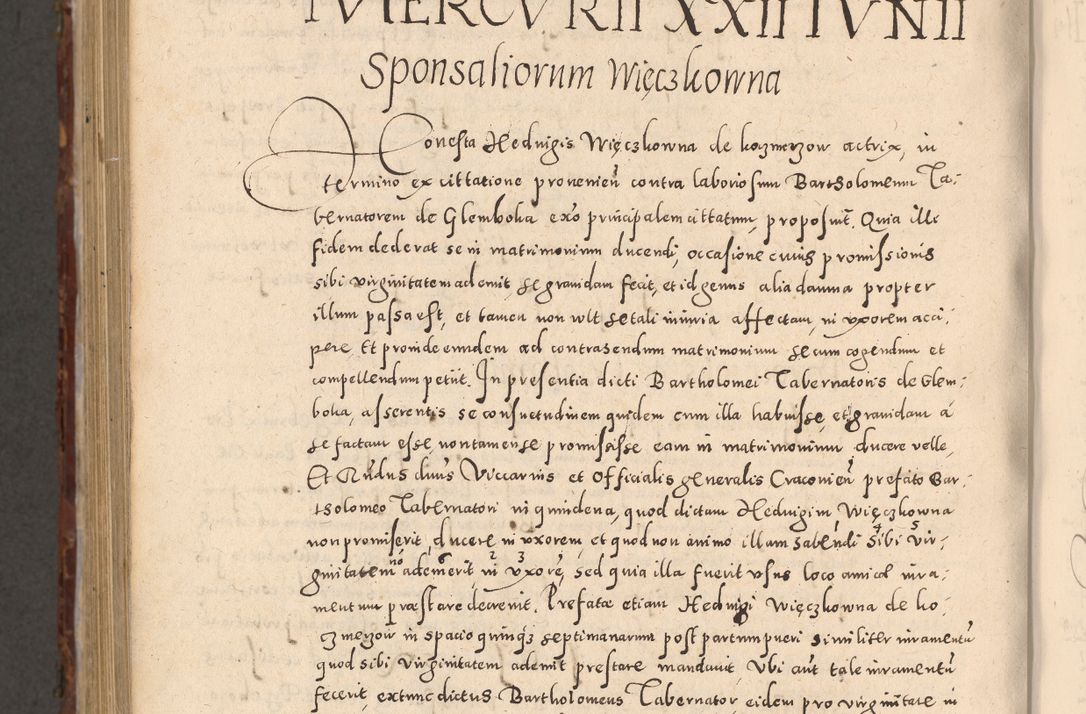 MERCVRII XXII IVNII
Sponsaliorum Więczkowna
Honesta Hedvigis Więczkowna de kozmyrzow actrix, in
termino ex cittatione provenien̄ contra laboriosum Bartholomeum Ta-
bernatorem de Glemboka ex̄o principalem cittatum, proposuit. Quia ille
fidem dederat se in matrimonium ducendi, occasione cuius promissionis
sibi virginitatem ademit, se gravidam fecit, et id genus alia damna propter
illum passa est, et tamen non vult se tali iniuria affectam, in vxorem acci-
pere. Et proinde eundem ad contrahendum matrimonium secum cogendum et
compellendum petiit. In presentia dicti Bartholomei Tabernatoris de Glem-
boka, asserentis se consuetudinem quidem cum illa habuisse, et gravidam a
se factam esse, non tamen se promisisse eam in matrimonium ducere velle,
Et R̄ndus d̄nus Viccarius et Officialis generalis Cracovien̄ prefato Bar-
tholomeo Tabernatori in quindena, quod dictam Hedvigim Więczkowna
non promiserit, ducere in vxorem, et quod non animo illam habendi sibi vir-
ginitatem ademerit, in vxorē, sed quia illa fuerit vsus loco amicae iura-
mentum praestare decrevit. Prefatae etiam Hedvigi Więczkowna de ko-
czmerzow in spacio quinq3 septimanarum post partum pueri similiter iuramentū
quod sibi virginitatem ademit prestare mandavit. Vbi aūt tale iuramentū
fecerit, extunc dictus Bartholomeus Tabernator eidem pro virginitate in